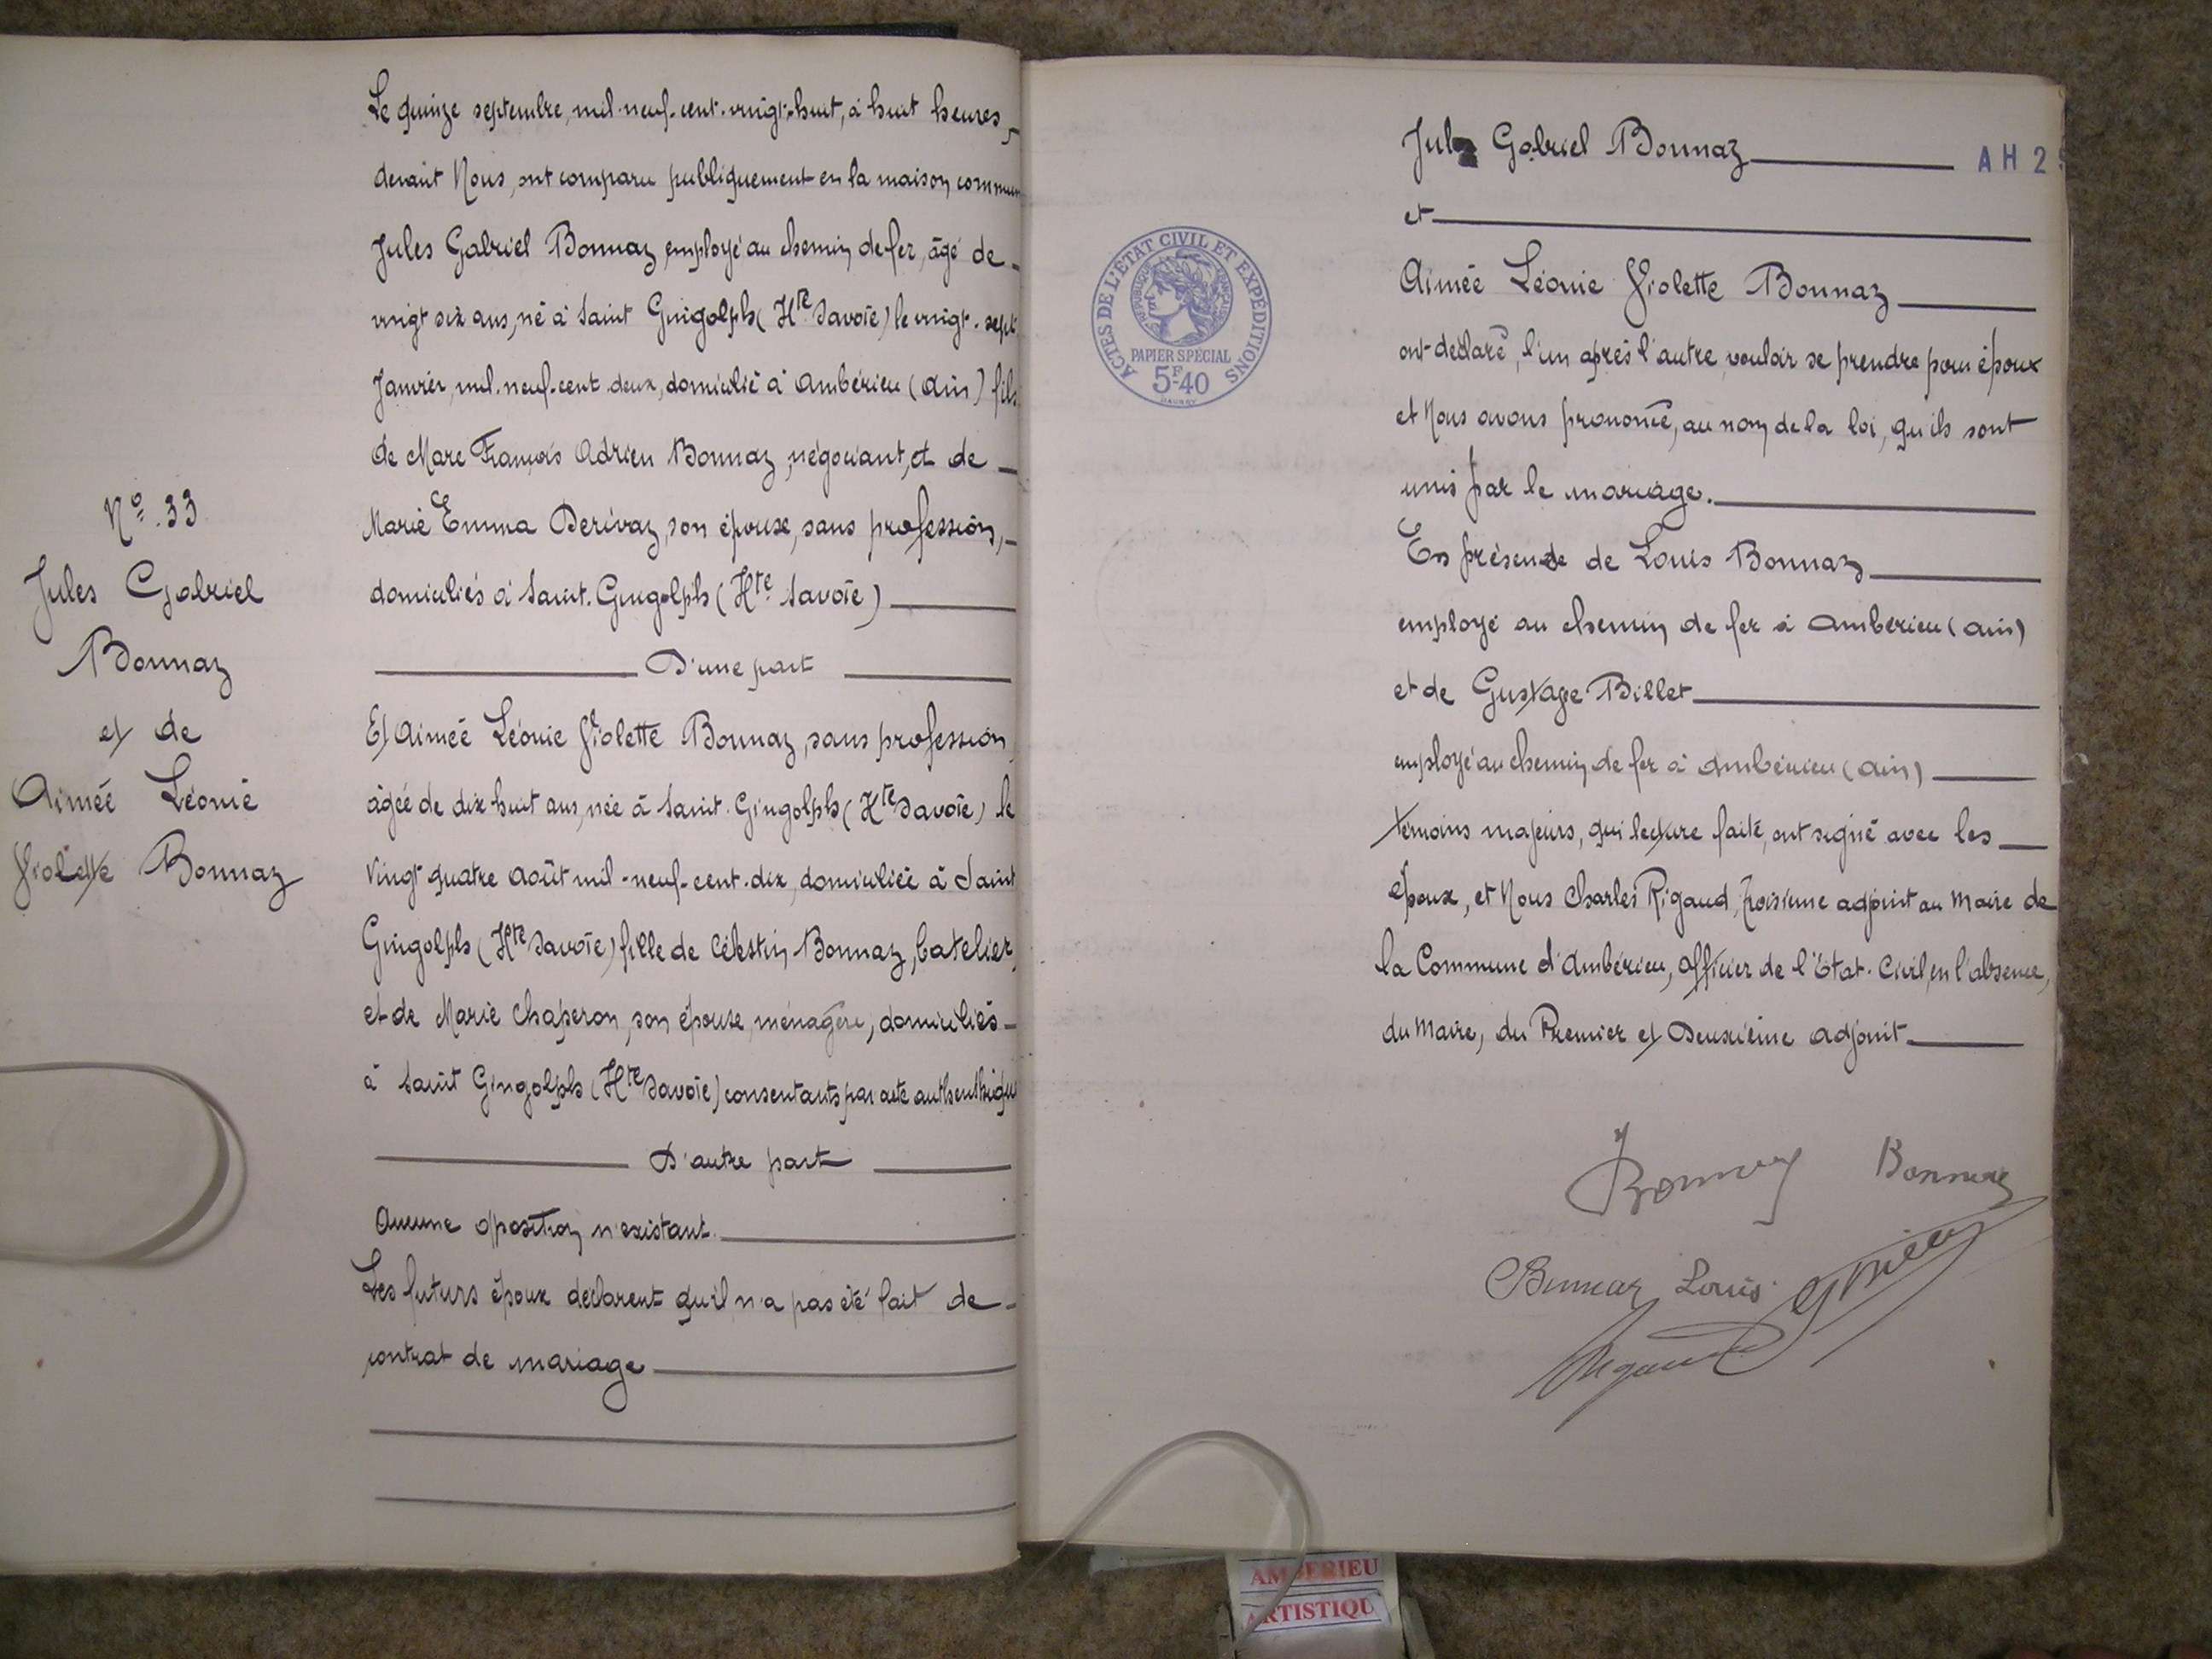 Le quinze septembre, mil-neuf-cent-vingt-huit, à huit heures
devant Nous, ont comparu publiquement en la maison commun
Jules Gabriel Bonnaz, employé au chemin de fer, âgé de
vingt six ans, né à Saint Gingolph (Hte Savoie) le vingt-sept
Janvier, mil-neuf-cent-deux, domicilié à Ambérieu (Ain) fils
de Marc François Adrien Bonnaz, négociant, et de
Marie Emma Derivaz, son épouse, sans profession,
domiciliés à Saint-Gingolph (Hte Savoie)
D'une part
Et Aimée Léonie Violette Bonnaz, sans profession
âgée de dix huit ans, née à Saint-Gingolph (Hte Savoie) le
Vingt quatre Août mil-neuf-cent-dix, domiciliée à Saint
Gingolph (Hte Savoie) fille de Célestin Bonnaz, batelier,
et de Marie Chaperon, son épouse, ménagère, domiciliés
à Saint Gingolph (Hte Savoie) consentants par acte authenthique
D'autre part
Aucune opposition n'existant.
Les futurs époux déclarent qu'il n'a pas été fait de
contrat de mariage
No. 33
Jules Gabriel
Bonnaz
et de
Aimée Léonie
Violette Bonnaz
Jules Gabriel Bonnaz
AH 2
et
Aimée Léonie Violette Bonnaz
ont déclaré, l'un après l'autre vouloir se prendre pour époux
et Nous avons prononcé, au nom de la loi, qu'ils sont
unis par le mariage.
En présence de Louis Bonnaz
employé au chemin de fer à Ambérieu (Ain)
et de Gustave Billet
employé au chemin de fer à Ambérieu (Ain)
témoins majeurs, qui lecture faite, ont signé avec les
époux, et Nous Charles Rigaud, Troisième adjoint au Maire de
la Commune d'Ambérieu, Officier de l'État-Civil, en l'absence,
du Maire, du Premier et Deuxième adjoint.
Bonnaz Bonnaz
Bonnaz Louis. G Billet
Rigaud
ACTES DE L'ÉTAT CIVIL ET EXPÉDITIONS
RÉPUBLIQUE FRANÇAISE
PAPIER SPÉCIAL
5F40
AMBERIEU
ARTISTIQU